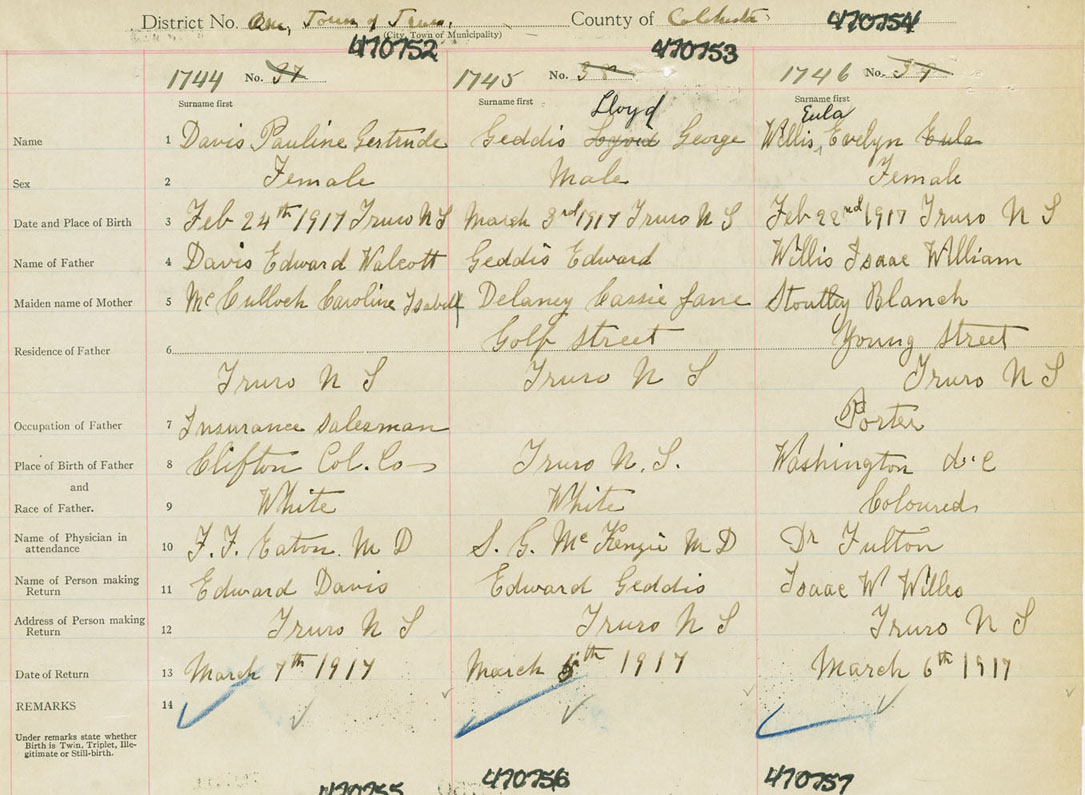 District No. One, Town of Truro, County of Colchester 470754
(City, Town of Municipality)
470752 470753
1744 No. 37 1745 No. 38 1746 No. 39
Surname first Surname first Surname first
Lloyd Eula
Name 1 Davis Pauline Gertrude Geddis George Willis, Evelyn Eula
Sex 2 Female Male Female
Date and Place of Birth 3 Feb 24th 1917 Truro N S March 3rd 1917 Truro N S Feb 22nd 1917 Truro N S
Name of Father 4 Davis Edward Walcott Geddis Edward Willis Isaac William
Maiden name of Mother 5 McCulloch Caroline Isabell Delaney Cassie Jane Stoutley Blanch
Golf Street Young Street
Residence of Father 6
Truro N S Truro N S Truro N S
Occupation of Father 7 Insurance Salesman Porter
Place of Birth of Father 8 Clifton Col. Co Truro N. S. Washington d.c
and
Race of Father. 9 White White Coloured
Name of Physician in
attendance 10 F. F. Eaton. M D S. G. McKenzie M D Dr Fulton
Name of Person making
Return 11 Edward Davis Edward Geddis Isaac W Willis
Address of Person making
Return 12 Truro N S Truro N S Truro N S
Date of Return 13 March 7th 1917 March th 1917 March 6th 1917
REMARKS 14
Under remarks state whether
Birth is Twin, Triplet, Ille-
gitimate or Still-birth.
470755 470756 470757